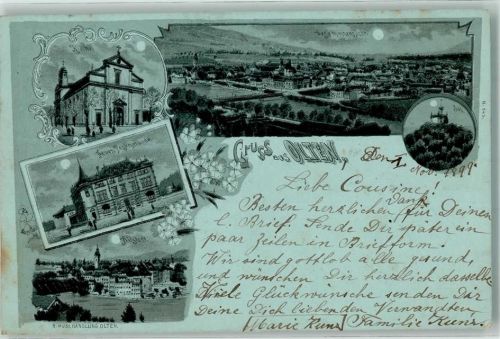 GRUSS AUS OLTEN.
Den 1. Nov. 1899
Liebe Cousine!
Besten herzlichen Dank für Deinen
l. Brief. Sende Dir später ein
paar Zeilen in Briefform.
Wir sind gottlob alle gesund,
und wünschen Dir herzlich dasselbe
Viele Glückwünsche senden Dir
Deine Dich liebenden Verwandten
Marie Kunz Familie Kunz.
HANDLUNG OLTEN.